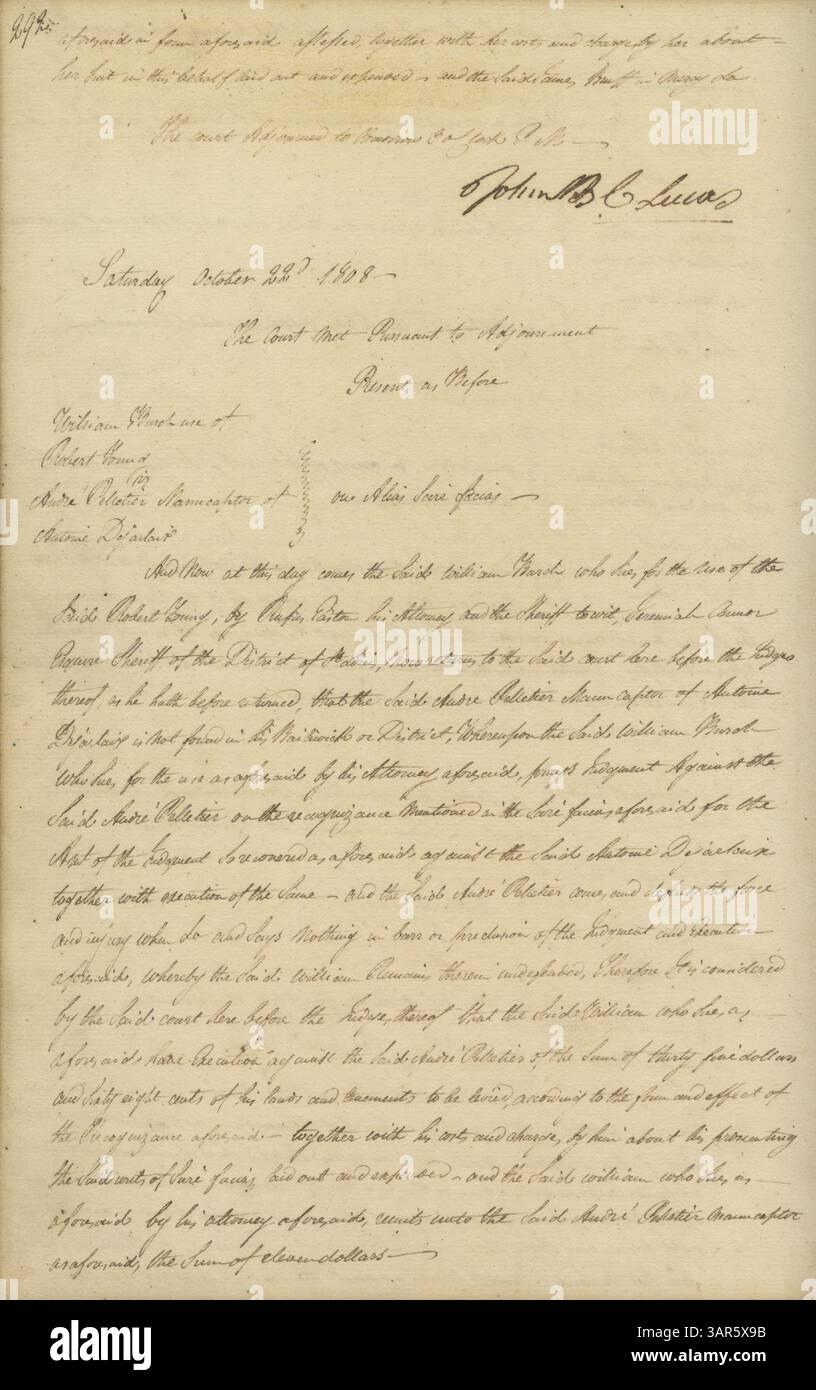 292
aforesaid in form aforesaid assessed, together with her costs and charges, by her about
her suit in this behalf laid out and expended – and the said James Bruff in Mercy &a
The court Adjourned to tomorrow 3 oClock P M —
John B C Lucas
Saturday October 22d 1808 —
The Court met Pursuant to Adjournment
Present as Before
William Burch use of
Robert Young
vs
André Pelletier Manucaptor of
Antoine Desarlaix
on Alias Scire facias —
And Now at this day comes the said William Burch who sues for the use of the
said Robert Young, by Rufus Easton his Attorney and the Sheriff to wit, Jeremiah Connor
Esquire Sheriff of the District of St Louis, Now returns to the said court here before the Judges
thereof, as he hath before returned, that the said André Pelletier Manucaptor of Antoine
Desarlaix is not found in his Bailiwick or District, Whereupon the said William Burch
who sues for the use as aforesaid by his Attorney aforesaid, prays Judgment Against the
said André Pelletier on the recognizance mentioned in the Scire facias aforesaid for the
Amt of the Judgment so recovered as aforesaid against the said Antoine Desarlaix
together with execution of the same – and the said André Pelletier comes and defends the force
and injury when &a and says nothing in barr or preclusion of the Judgment and Execution
aforesaid, whereby the said William Remains therein undefended, Therefore It is considered
by the said court here before the Judges thereof that the said William who sues as
aforesaid have Execution against the said André Pelletier of the sum of thirty five dollars
and sixty eight cents of his lands and tenements to be levied, according to the form and effect of
the Recognizance aforesaid – together with his costs and charges, by him about his prosecuting
the said writs of Scire facias, laid out and expended – and the said William who sues as
aforesaid by his attorney aforesaid, remits unto the said André Pelletier Manucaptor
as aforesaid, the sum of eleven dollars —
alamy
a
Image ID: 3AR5X9B
www.alamy.com